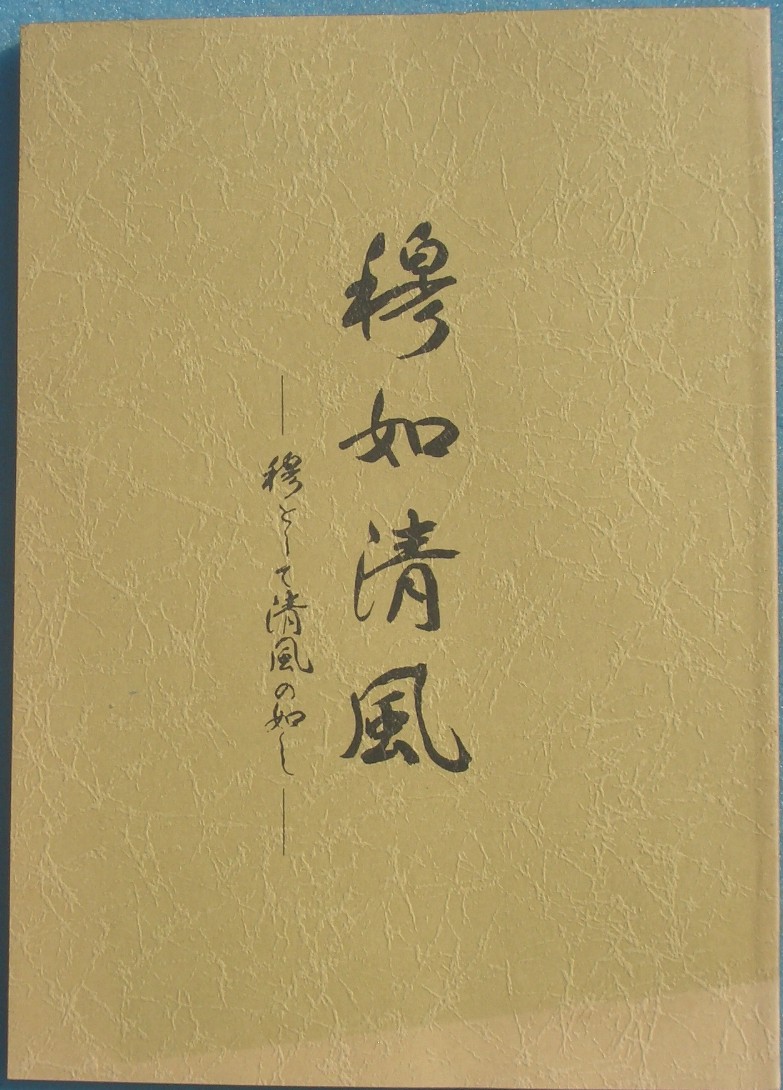 穆如清風
―穆として清風の如し―